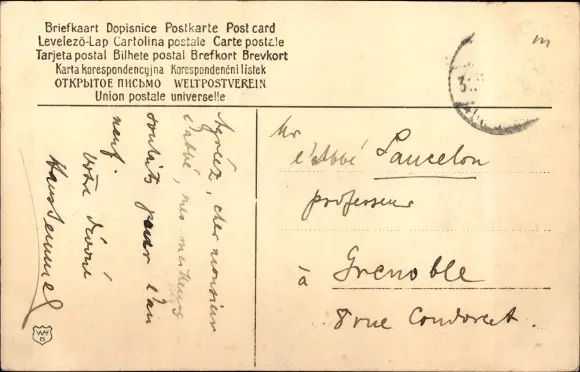 Briefkaart Dopisnice Postkarte Post card
Levelező-Lap Cartolina postale Carte postale
Tarjeta postal Bilhete postal Brefkort Brevkort
Karta korespondencyjna Korespondenční listek
ОТКРЫТОЕ ПИСЬМО WELTPOSTVEREIN
Union postale universelle
Agréez, cher monsieur
l'abbé, mes meilleurs
souhaits pour l'an
neuf.
Votre dévoué
Mr
l'Abbé Paucelon
professeur
à Grenoble
8 rue Condorcet.
WH
B